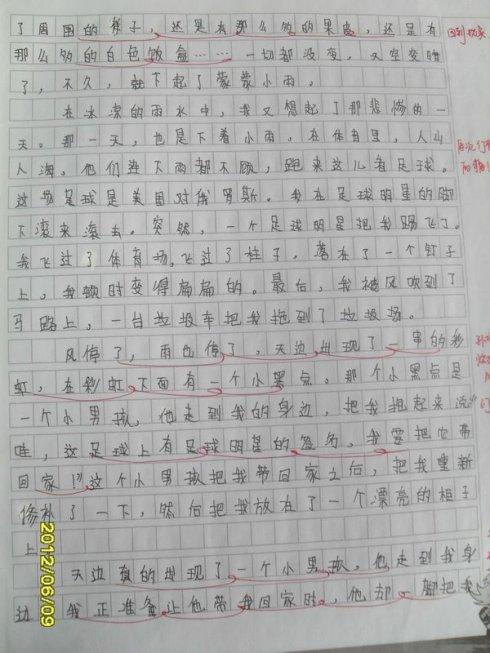 了周围的样子，还是有那么多的果皮，还是有
那么多的白色饭盒……一切都没变，天空变暗
了，不久，就下起了蒙蒙小雨。
在冰凉的雨水中，我又想起了那悲惨的一
天。那一天，也是下着小雨。在体育里，人山
人海。他们连下雨都不顾，跑来这儿看足球。
这场足球是美国对俄罗斯。我在足球明星的脚
下滚来滚去。突然，一个足球明星把我踢飞了。
我飞过了体育场，飞过了柱子。落在了一个钉子
上，我顿时变得扁扁的。最后，我被风吹到了
马路上，一台垃圾车把我拖到了垃圾场。
风停了，雨也停了，天边出现了一串的彩
虹，在彩虹下面有一个小黑点。那个小黑点是
一个小男孩，他走到我的身边，把我捡起来说：
哇，这足球上有足球明星的签名，我要把它带
回家！”这个小男孩把我带回家之后，把我重新
修补了一下，然后把我放在了一个漂亮的柜子
上。
天边真的出现了一个小男孩，他走到我身
边，我正准备让他带我回家时，他却一脚把我
回到现实
2012/06/09